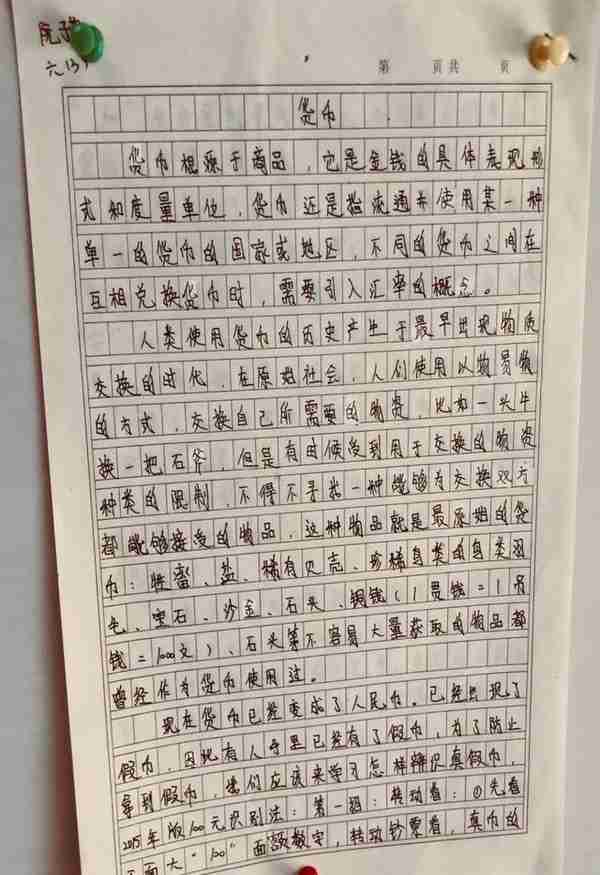 阮子
六(3)
第 页共 页
货币
货币根源于商品，它是金钱的具体表现形
式和度量单位，货币还是指流通并使用某一种
单一的货币的国家或地区，不同的货币之间在
互相兑换货币时，需要引入汇率的概念。
人类使用货币的历史产生于最早出现物质
交换的时代，在原始社会，人们使用以物易物
的方式，交换自己所需要的物资，比如一头牛
换一把石斧，但是有时候受到用于交换的物资
种类的限制，不得不寻找一种能够为交换双方
都能够接受的物品，这种物品就是最原始的货
币：牲畜、盐、稀有贝壳、珍稀鸟类的鸟类羽
毛、宝石、沙金、石头、铜钱(1贯钱=1吊
钱=1000文)、石头等不容易大量获取的物品都
曾经作为货币使用过。
现在货币已经变成了人民币，已经出现了
假币，因此有人手里已经有了假币，为了防止
拿到假币，我们应该来学习怎样辨识真假币，
2015年版100元识别法：第一招：转动看：①先看
正面大“100”面额数字，转动钞票看，真币的